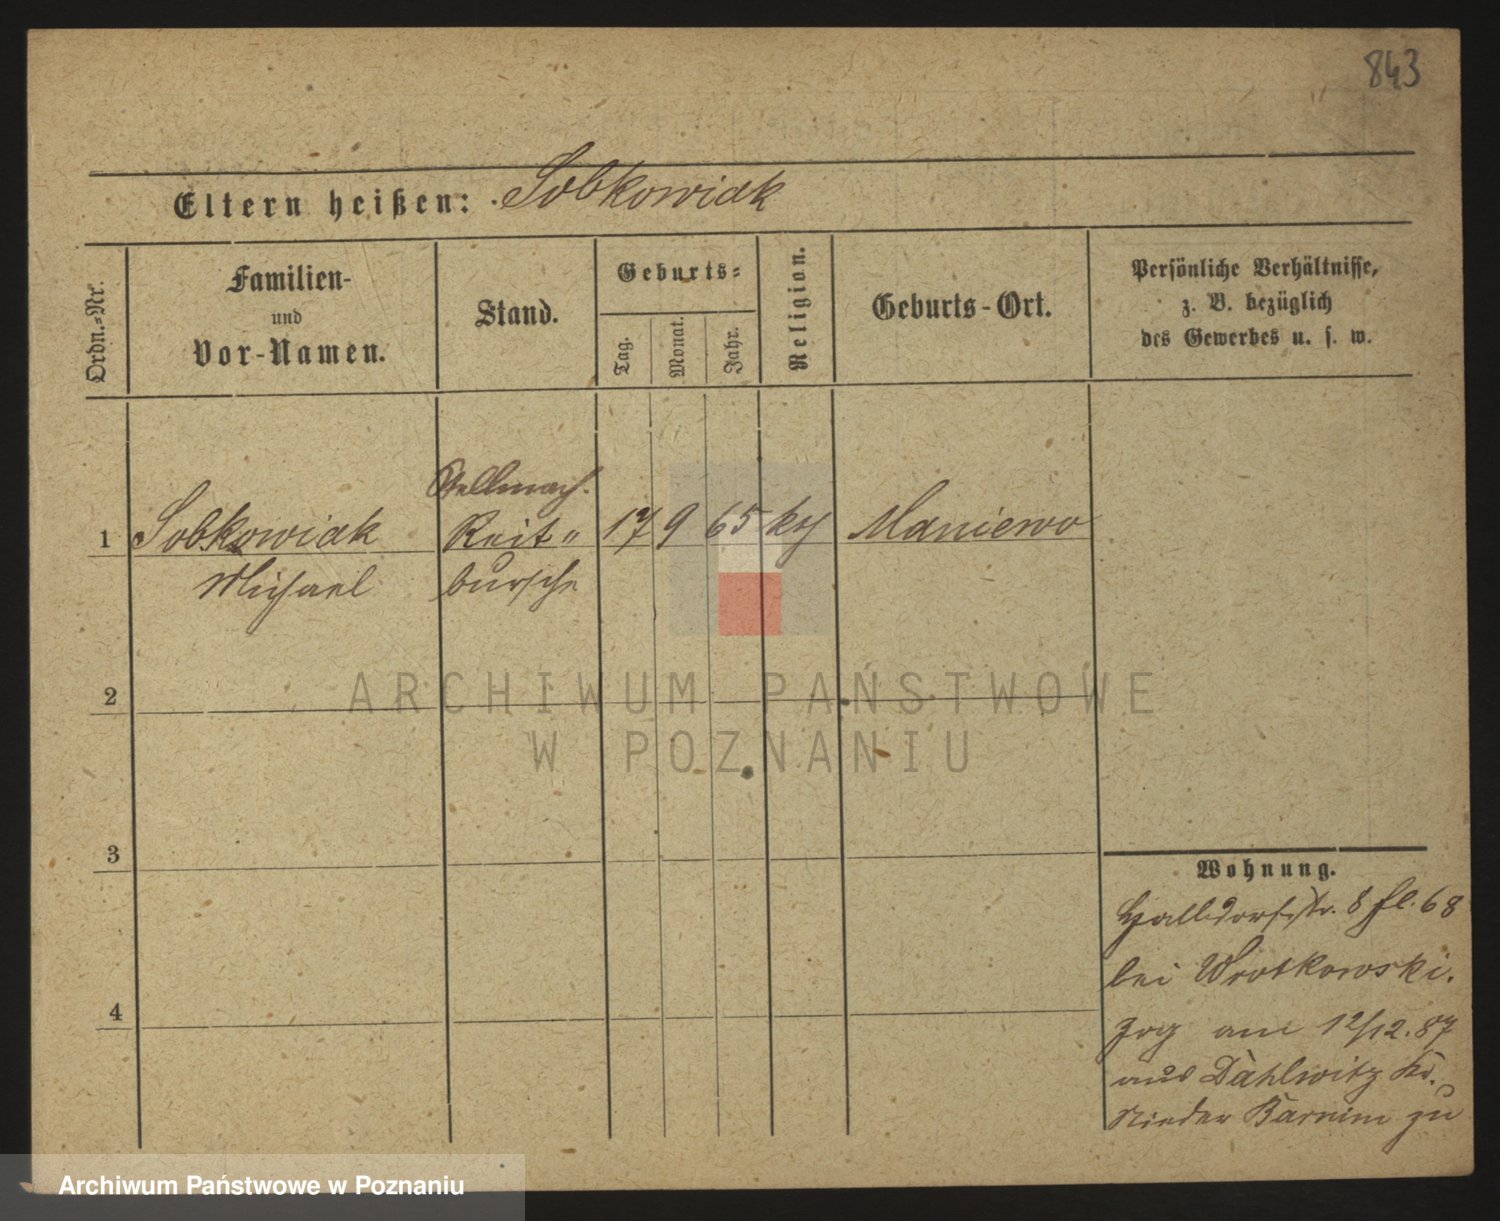 843
Eltern heißen: Sobkowiak
Ordn.-Nr.
Familien-
und
Vor-Namen.
Stand.
Geburts-
Tag.
Monat.
Jahr.
Religion.
Geburts-Ort.
Persönliche Verhältnisse,
z. B. bezüglich
des Gewerbes u. s. w.
Stellmach.
1 Sobkowiak Reit- 17 9 65 kth Maniewo
Michael bursche
2
3
4
Wohnung.
Halbdorfstr. 8 fl. 68
bei Wrotkowski.
Zog am 12/12.87
aus Dahlwitz Kr.
Nieder Barnim zu
ARCHIWUM PAŃSTWOWE
W POZNANIU
Archiwum Państwowe w Poznaniu